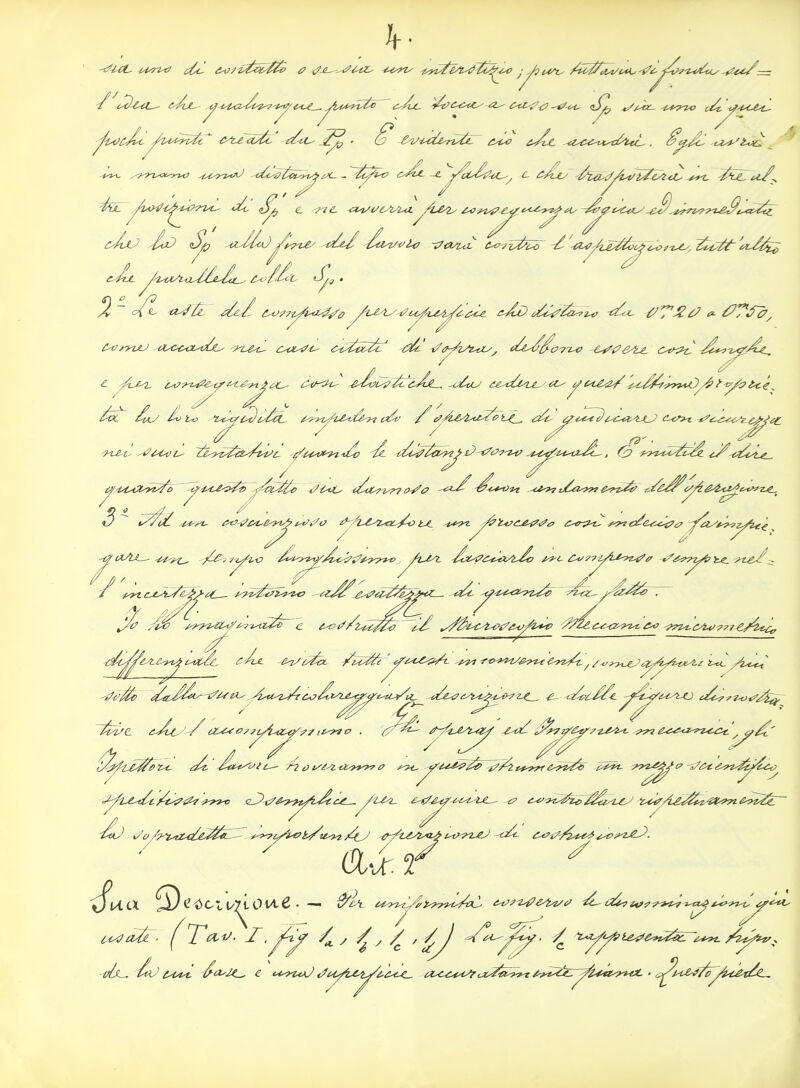 4.
sia uno di contatto o se sia un interstizio; pur tuttavia si fonda sul=
l'idea che qualunque punto che tocca a caso su Sp sia uno di quei
pochi punti creati da Pp. È evidente ciò che accadrà. Egli avrà
in mano una distanza-tipo che è falsa, e che trasporterà in tre al-
tre posizioni di Sp e ne avverrà per conseguenza logica ed immediata
che la Sp alla fine del lavoro sarà contro l'aspettazione, tutt'altro
che parallela colla Sp.
2º- Le aste del compasso per superficie che distano da 0m.20 a 0m.50,
come accade nei casi citati di sopra, debbono essere così lunghe
e per conseguenza così elastiche da cedere a quest'ultima proprie-
tà la loro rigidità impedendo l'operatore di giudicare con sicurezza
nei suoi tentativi quando le distanze sono uguali. È inutile il dire
quanto questo fatto sia dannoso al buon andamento dell'operazione.
3º- Ad un coscienzioso operatore un processo così indeciso fa impie-
gare un tempo lunghissimo per lasciarlo in compenso sempre nel-
l'incertezza intorno all'esattezza di quanto ha fatto.
Io ho immaginato e costrutto il Microscopio Meccanico micrometrico
differenziale che evita tutti questi inconvenienti, come apparirà più
sotto dalla sua particolareggiata descrizione e dalle figure dimostra-
tive che l'accompagnano. Gli operaj ed Ingegneri meccanici, gli
Ispettori di lavori troveranno in questo strumento un mezzo scientifico,
speditissimo e semplice per eseguire o controllare rispettivamente
la sopradetta importante operazione di costruzione.
Art. 2º
Sua Descrizione. — Per uniformità conservo le denominazioni già
usate. (Tav. I, fig 1a, 1b, 1c, 1d) La fig. 1c rappresenta un tripo-
de la cui base è una superficie accuratamente piana. Questo piede